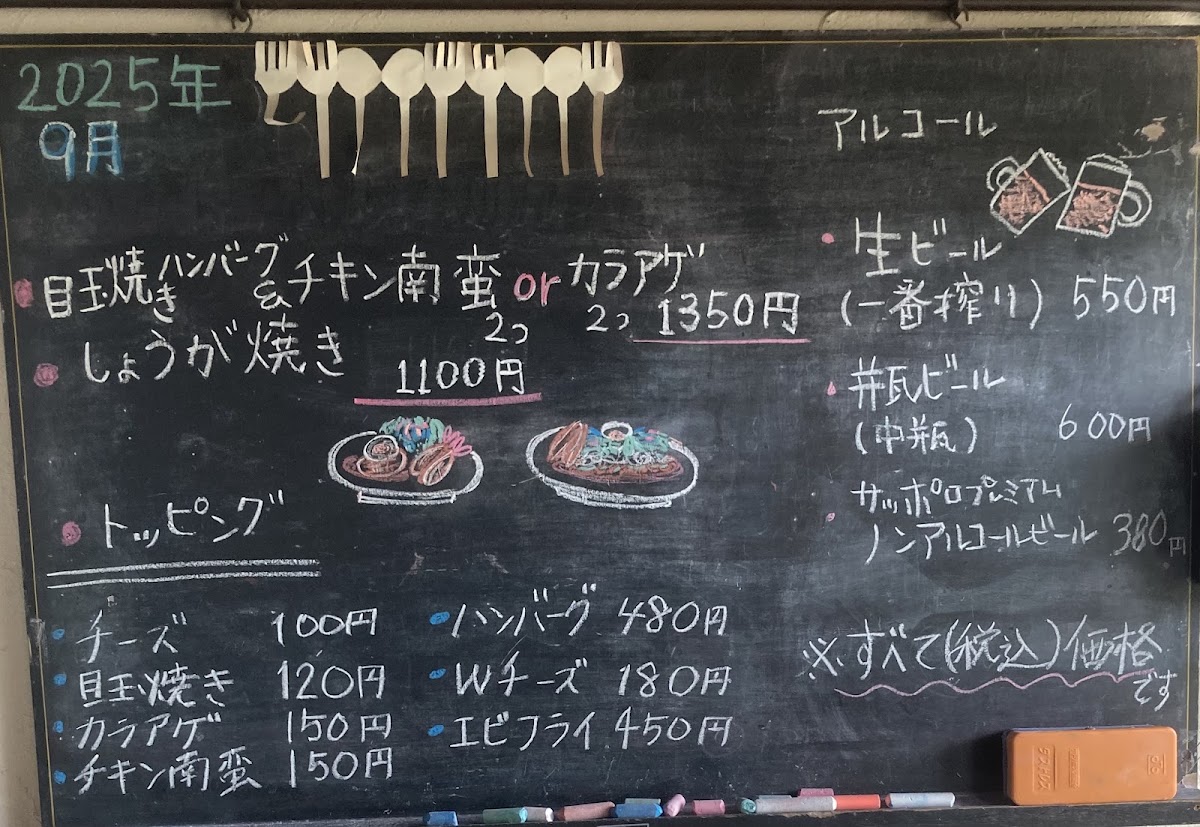 2025年
9月
目玉焼きハンバーグ&チキン南蛮 or カラアゲ
2コ 2コ 1350円
しょうが焼き
1100円
トッピング
チーズ 100円
目玉焼き 120円
カラアゲ 150円
チキン南蛮 150円
ハンバーグ 480円
Wチーズ 180円
エビフライ 450円
アルコール
生ビール
(一番搾り) 550円
瓶ビール
(中瓶) 600円
サッポロプレミアム
ノンアルコールビール 380円
※すべて(税込)価格
です